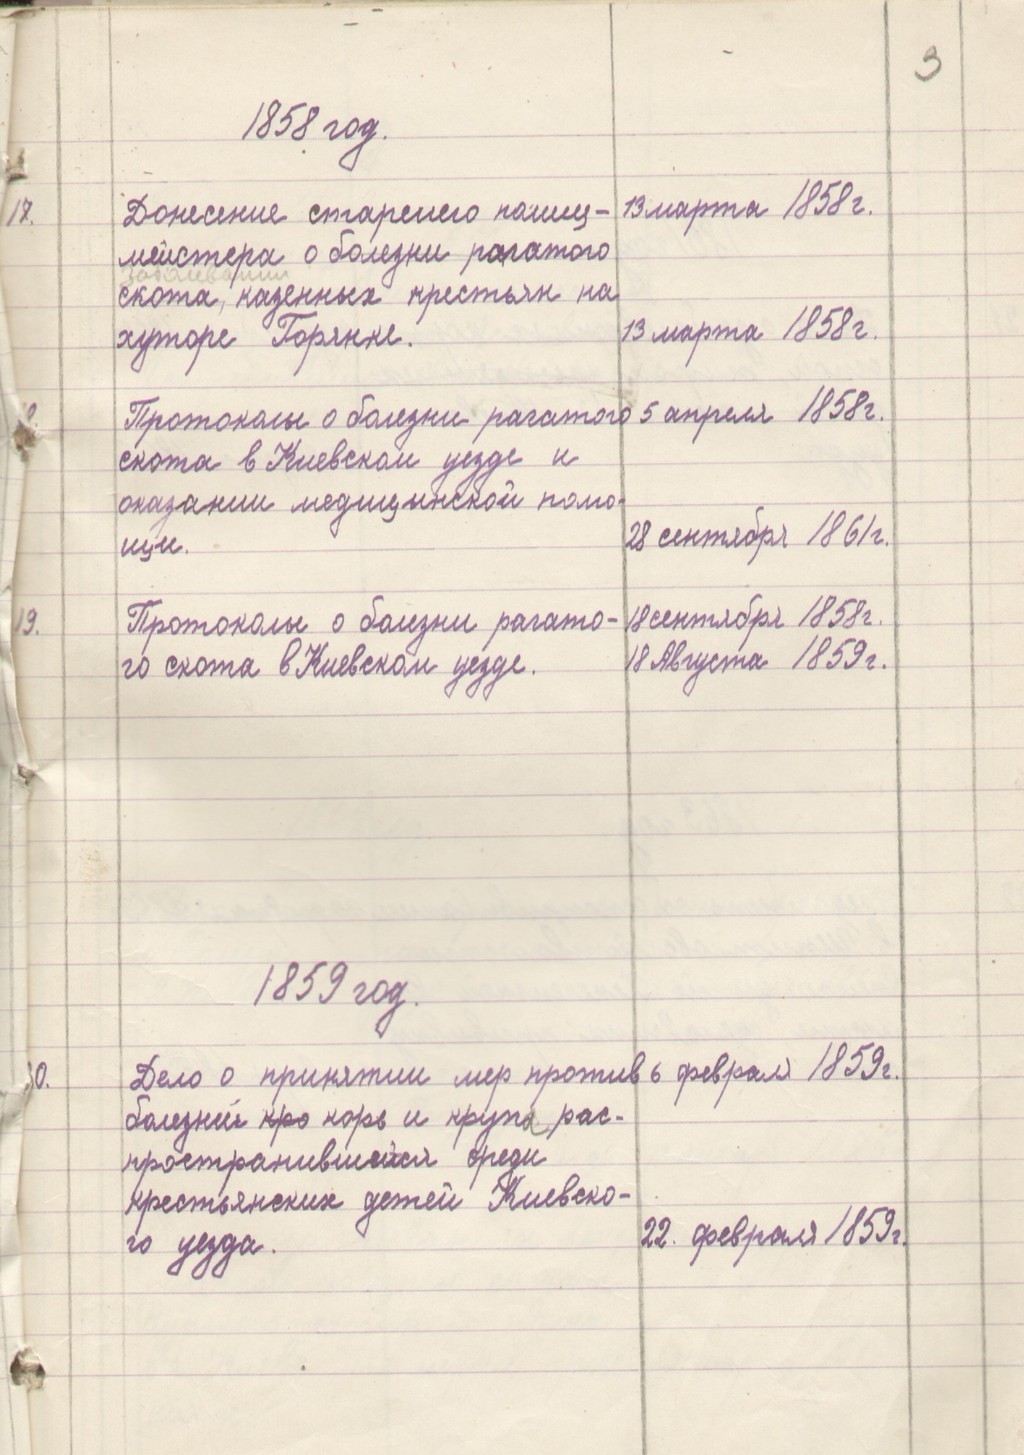 3
1858 год.
17. Донесение старшего полиц- 13 марта 1858 г.
мейстера о болезни рагатого
заболевании
скота, казенных крестьян на
хуторе Горянке. 13 марта 1858 г.
Протоколы о болезни рагатого 5 апреля 1858 г.
скота в Киевском уезде и
оказании медицынской помо-
щи. 28 сентября 1861 г.
19. Протоколы о болезни рагато- 18 сентября 1858 г.
го скота в Киевском уезде. 18 Августа 1859 г.
1859 год.
20. Дело о принятии мер против 6 февраля 1859 г.
болезней кро корь и крупа рас-
пространившейся среди
крестьянских детей Киевско-
го уезда. 22. февраля 1859 г.